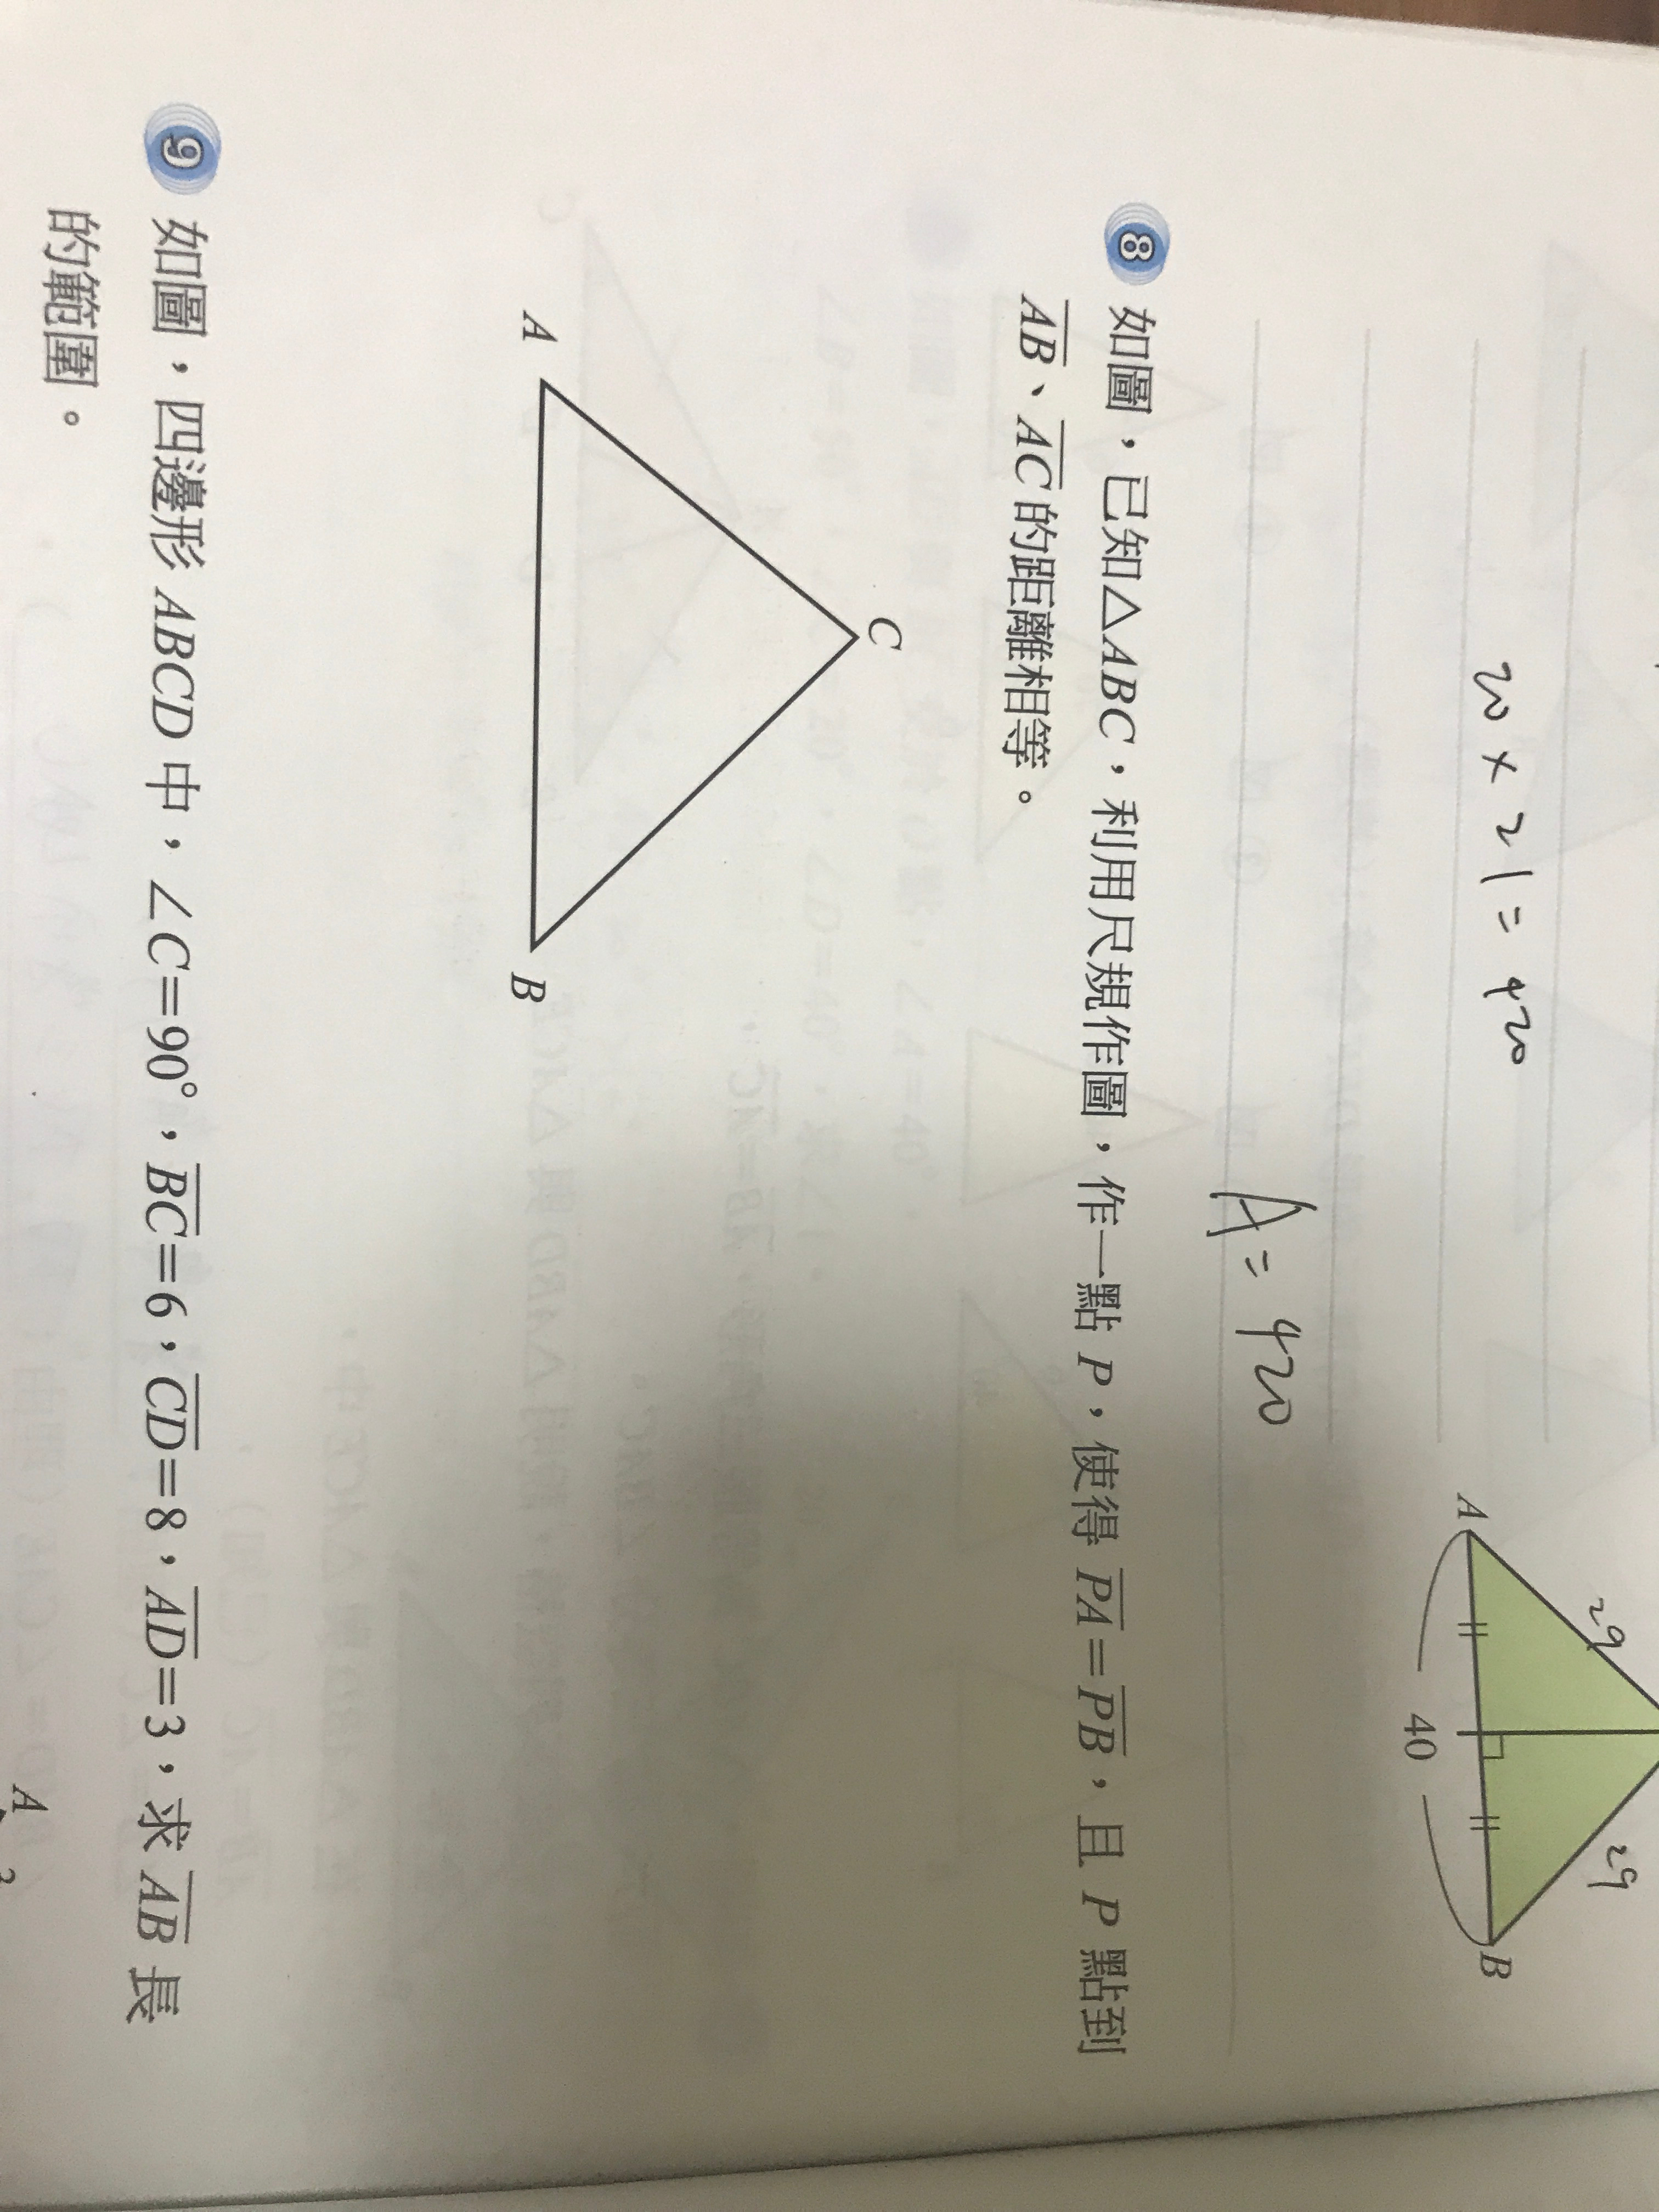 20 × 21 = 420
29
29
A
B
40
A = 420
8 如圖，已知△ABC，利用尺規作圖，作一點 P，使得 PA＝PB，且 P 點到
AB、AC 的距離相等。
C
A
B
9 如圖，四邊形 ABCD 中，∠C＝90°，BC＝6，CD＝8，AD＝3，求 AB 長
的範圍。
A
3